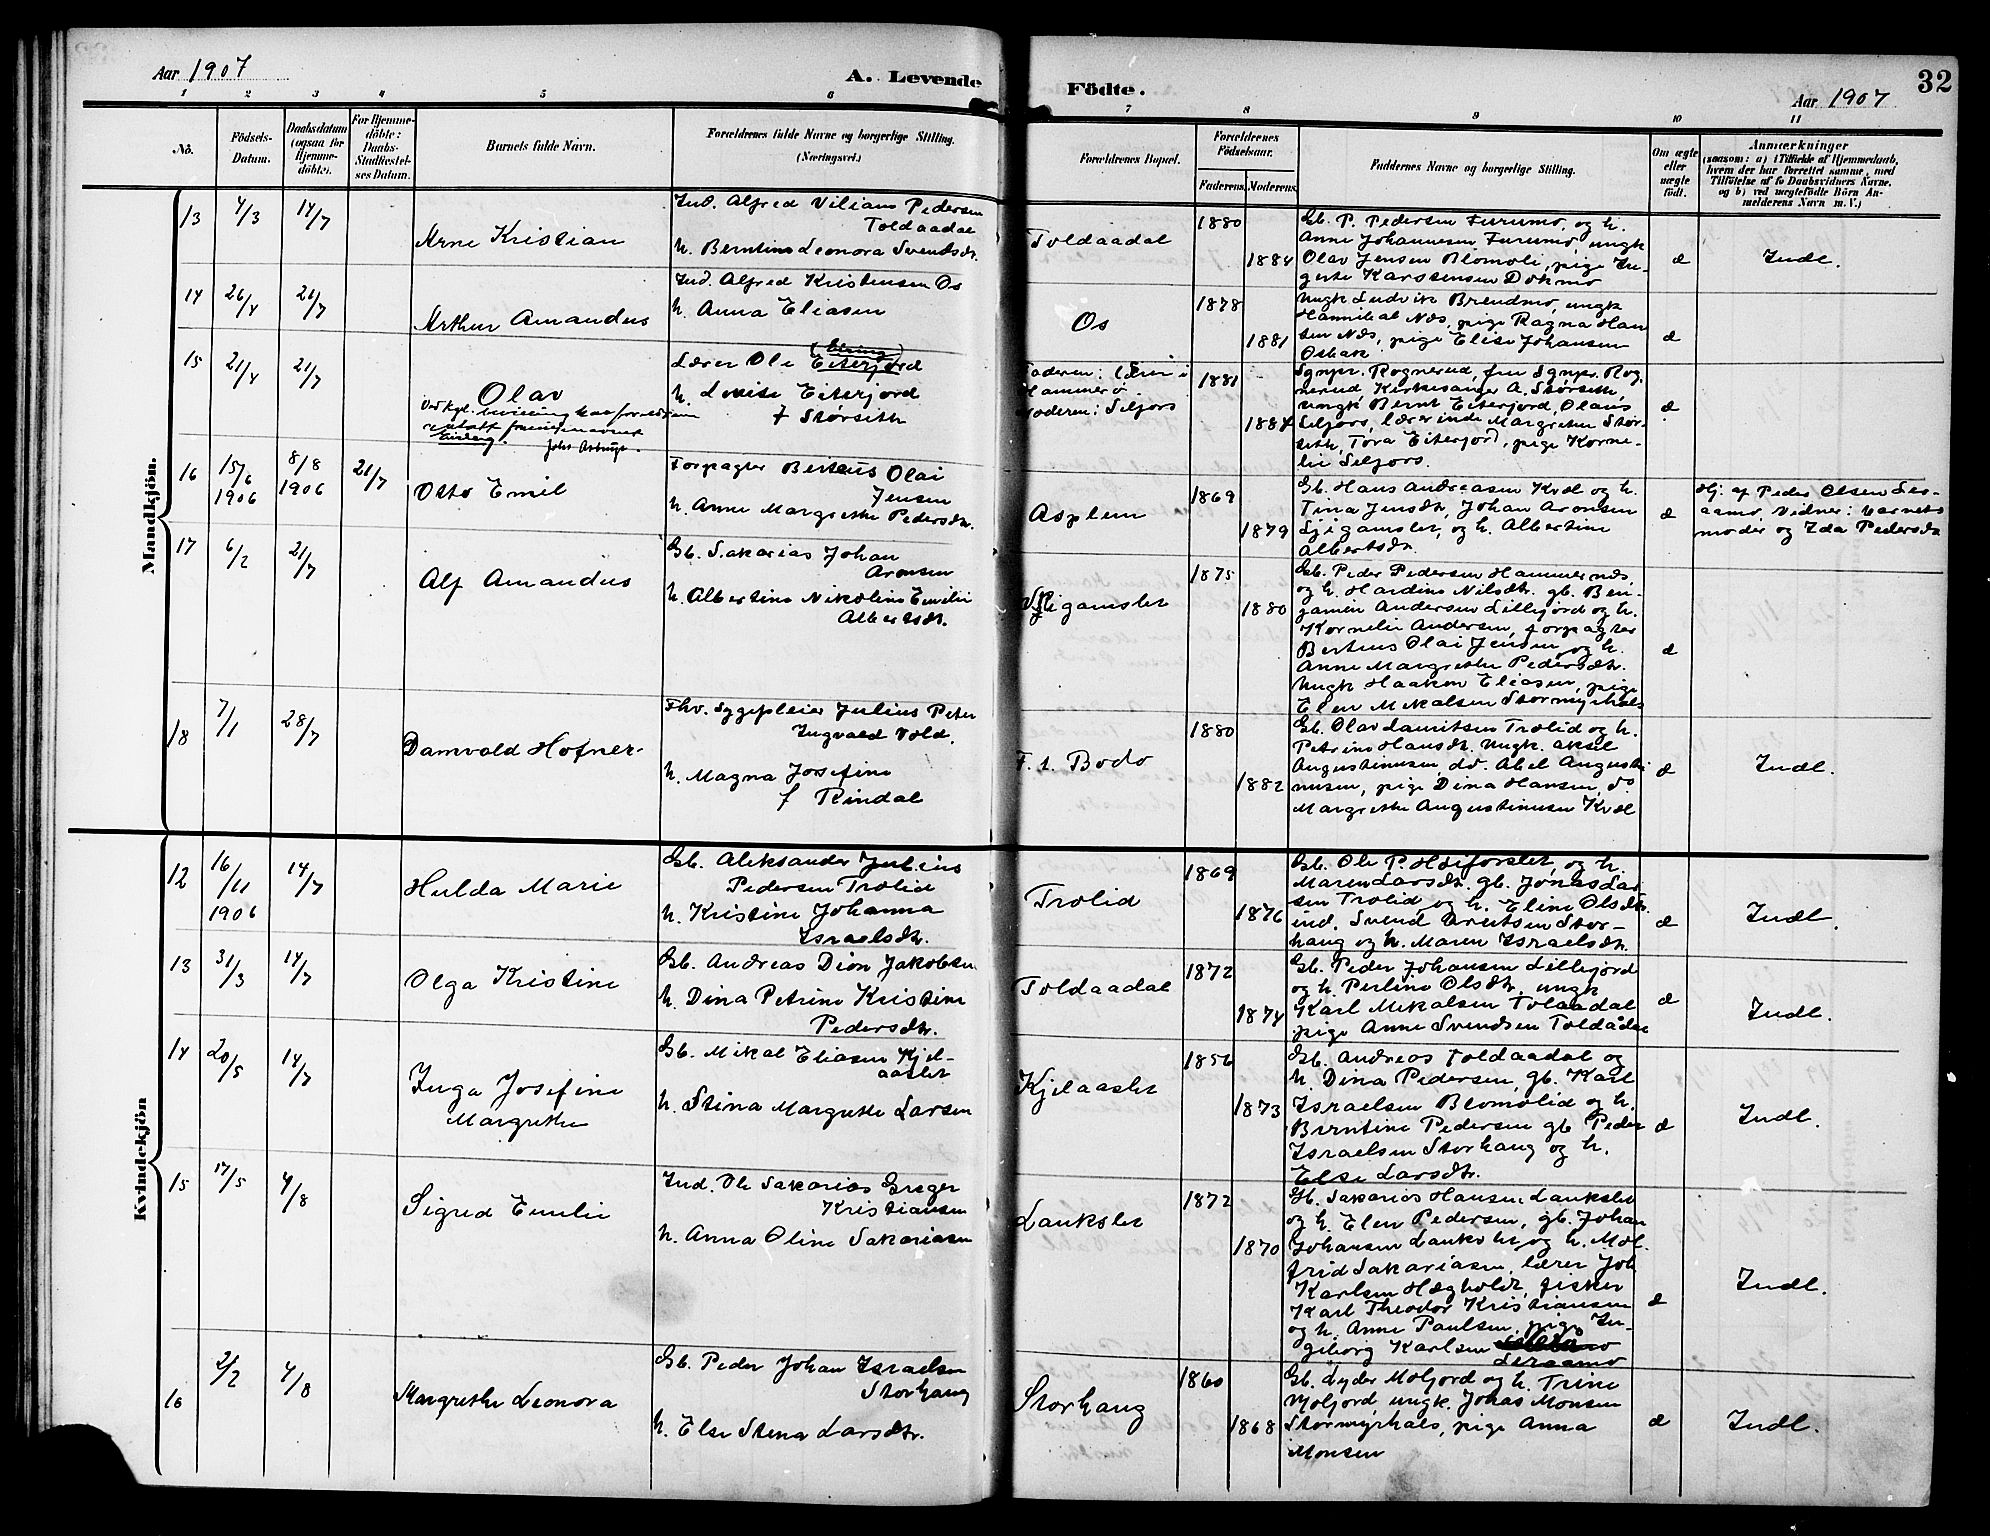 Aar 1907
A. Levende Födte.
Aar 1907
32
1 2 3 4 5 6 7 8 9 10 11
No.
Födsels-
Datum.
Daabsdatum
(ogsaa for
Hjemme-
döbte).
For Hjemme-
döbte:
Daabs-
Stadfæstel-
ses Datum.
Barnets fulde Navn.
Forældrenes fulde Navne og borgerlige Stilling.
(Næringsvei.)
Forældrenes Bopæl.
Forældrenes
Fødselsaar.
Faderens. Moderens.
Faddernes Navne og borgerlige Stilling.
Om ægte
eller
uægte
født.
Anmærkninger
(saasom: a) i Tilfælde af Hjemmedaab,
hvem der har forrettet samme, med
Tilføielse af to Daabsvidners Navne,
og b) ved uægtefödte Börn An-
melderens Navn m. V.)
Mandkjön.
13
4/3
14/7
Arne Kristian
Ind. Alfred Viliam Pedersen
Toldaadal
h. Berntine Leonora Svendsdtr.
Toldaadal
1880
1884
Gb. P. Pedersen Furumo, og h.
Anne Johannesen Furumo, ungk
Olav Jensen Blomoli, pige In-
gerte Karstensen Dokmo
æ
Indl.
14
26/4
21/7
Arthur Amandus
Ind. Alfred Kristensen Os
h. Anna Eliasen
Os
1878
1881
Ungk Ludvik Brendmo, ungk
Hannibal Næs, pige Ragna Han
sen Næs, pige Elise Johansen
Osbak
æ
15
21/4
21/7
Olav
Ved kgl. bevilling har forældrene
antatt familienavnet
Elving.
(Elving)
Lærer Ole Eiterjord
h. Lovise Eiterjord
f Størseth
Faderen: Leir i
Hammerø
Moderen: Seljors
1881
1884
Sgnpr. Rognerud, fru Sgnpr. Rog
nerud, Kirkesanger A. Størseth,
ungk Bernt Eiterjord, Olaus
Seljors, lærerinde Margrethe Stør
seth, Tora Eiterjord, pige Korne-
lie Seljors.
æ
16
15/6
1906
8/8
1906
21/7
Otto Emil
Forpagter Berteus Olai
Jensen
h. Anne Margrethe Pedersdtr.
Asplem
1869
1879
Gb. Hans Andreasen Kvæl og h.
Tina Jensdtr, Johan Aronsen
Ljigamslet, og h. Albertine
Albertsdtr.
æ
Hj. af Peder Olsen Ler-
aamo, Vidner: barnets
moder og Ida Pedersdtr
17
6/2
21/7
Alf Amandus
Gb. Sakarias Johan
Aronsen
h. Albertine Nikoline Emelie
Albertsdtr.
Ljigamslet
1875
1880
Gb. Peder Pedersen Hammernæs,
og h. Hardine Nilsdtr. gb. Ben-
jamin Andersen Lillejord og h.
Kornelie Andersen, forpagter
Berteus Olai Jensen og h.
Anne Margrethe Pedersdtr.
Ungk Haakon Eliasen, pige
Elen Mikalsen Stormyrhals
æ
18
7/1
28/7
Damvald Hofner
Fhv. Sygepleier Julius Peter
Ingvald Vold.
h. Magna Josefine
f Rindal
F. t. Bodo
1880
1882
Gb. Olav Lauritsen Trolid og h.
Petrine Hansdtr. Ungk. Aksel
Augustinusen, do. Abel Augusti
nusen, pige Dina Hansen, do
Margrethe Augustinusen Kvæl
æ
Indl.
Kvindekjön
12
16/11
1906
14/7
Hulda Marie
Gb. Aleksander Julius
Pedersen Trolid
h. Kristine Johanna
Israelsdtr.
Trolid
1869
1876
Gb. Ole P. Høiforslet, og h.
Maren Larsdtr. gb. Jonas Lar
sen Trolid og h. Eline Olsdtr.
ind. Svend Arntsen Stor-
haug og h. Maren Israelsdtr.
æ
Indl.
13
31/3
14/7
Olga Kristine
Gb. Andreas Dion Jakobsen
h. Dina Petrine Kristine
Pedersdtr.
Toldaadal
1872
1874
Gb. Peder Johansen Lillejord
og h. Perline Olsdtr, ungk
Karl Mikalsen Tolaadal
pige Anne Svendsen Toldådal
æ
Indl.
14
20/5
14/7
Inga Josefine
Margrethe
Gb. Mikal Eliasen Kjel-
aaslet
h. Stina Margrethe Larsen
Kjelaaslet
1856
1873
Gb. Andreas Toldaadal og
h. Dina Pedersen, gb. Karl
Israelsen Blomolid og h.
Berntine Pedersen gb Peder
Israelsen Storhaug og h.
Else Larsdtr.
æ
Indl.
15
17/5
4/8
Sigred Emelie
Ind. Ole Sakarias Greger
Kristiansen
h. Anna Oline Sakariasen
Lankslet
1872
1870
Gb. Sakarias Hansen Lankslet
og h. Elen Pedersen, gb. Johan
Johansen Lankslet og h. Mol-
frid Sakariasen, lærer Joh
Karlsen Hægholdt, fisker
Karl Theodor Kristiansen
og h. Anne Paulsen, pige In-
geborg Karlsen
Leraamo
æ
Indl.
16
2/2
4/8
Margrethe Leonora
Gb. Peder Johan Israelsen
Storhaug
h. Else Stina Larsdtr.
Storhaug
1860
1868
Gb. Lyder Moljord og h. Trine
Moljord, ungk. Jonas Monsen
Stormyrhals, pige Anna
Monsen
æ
Indl.